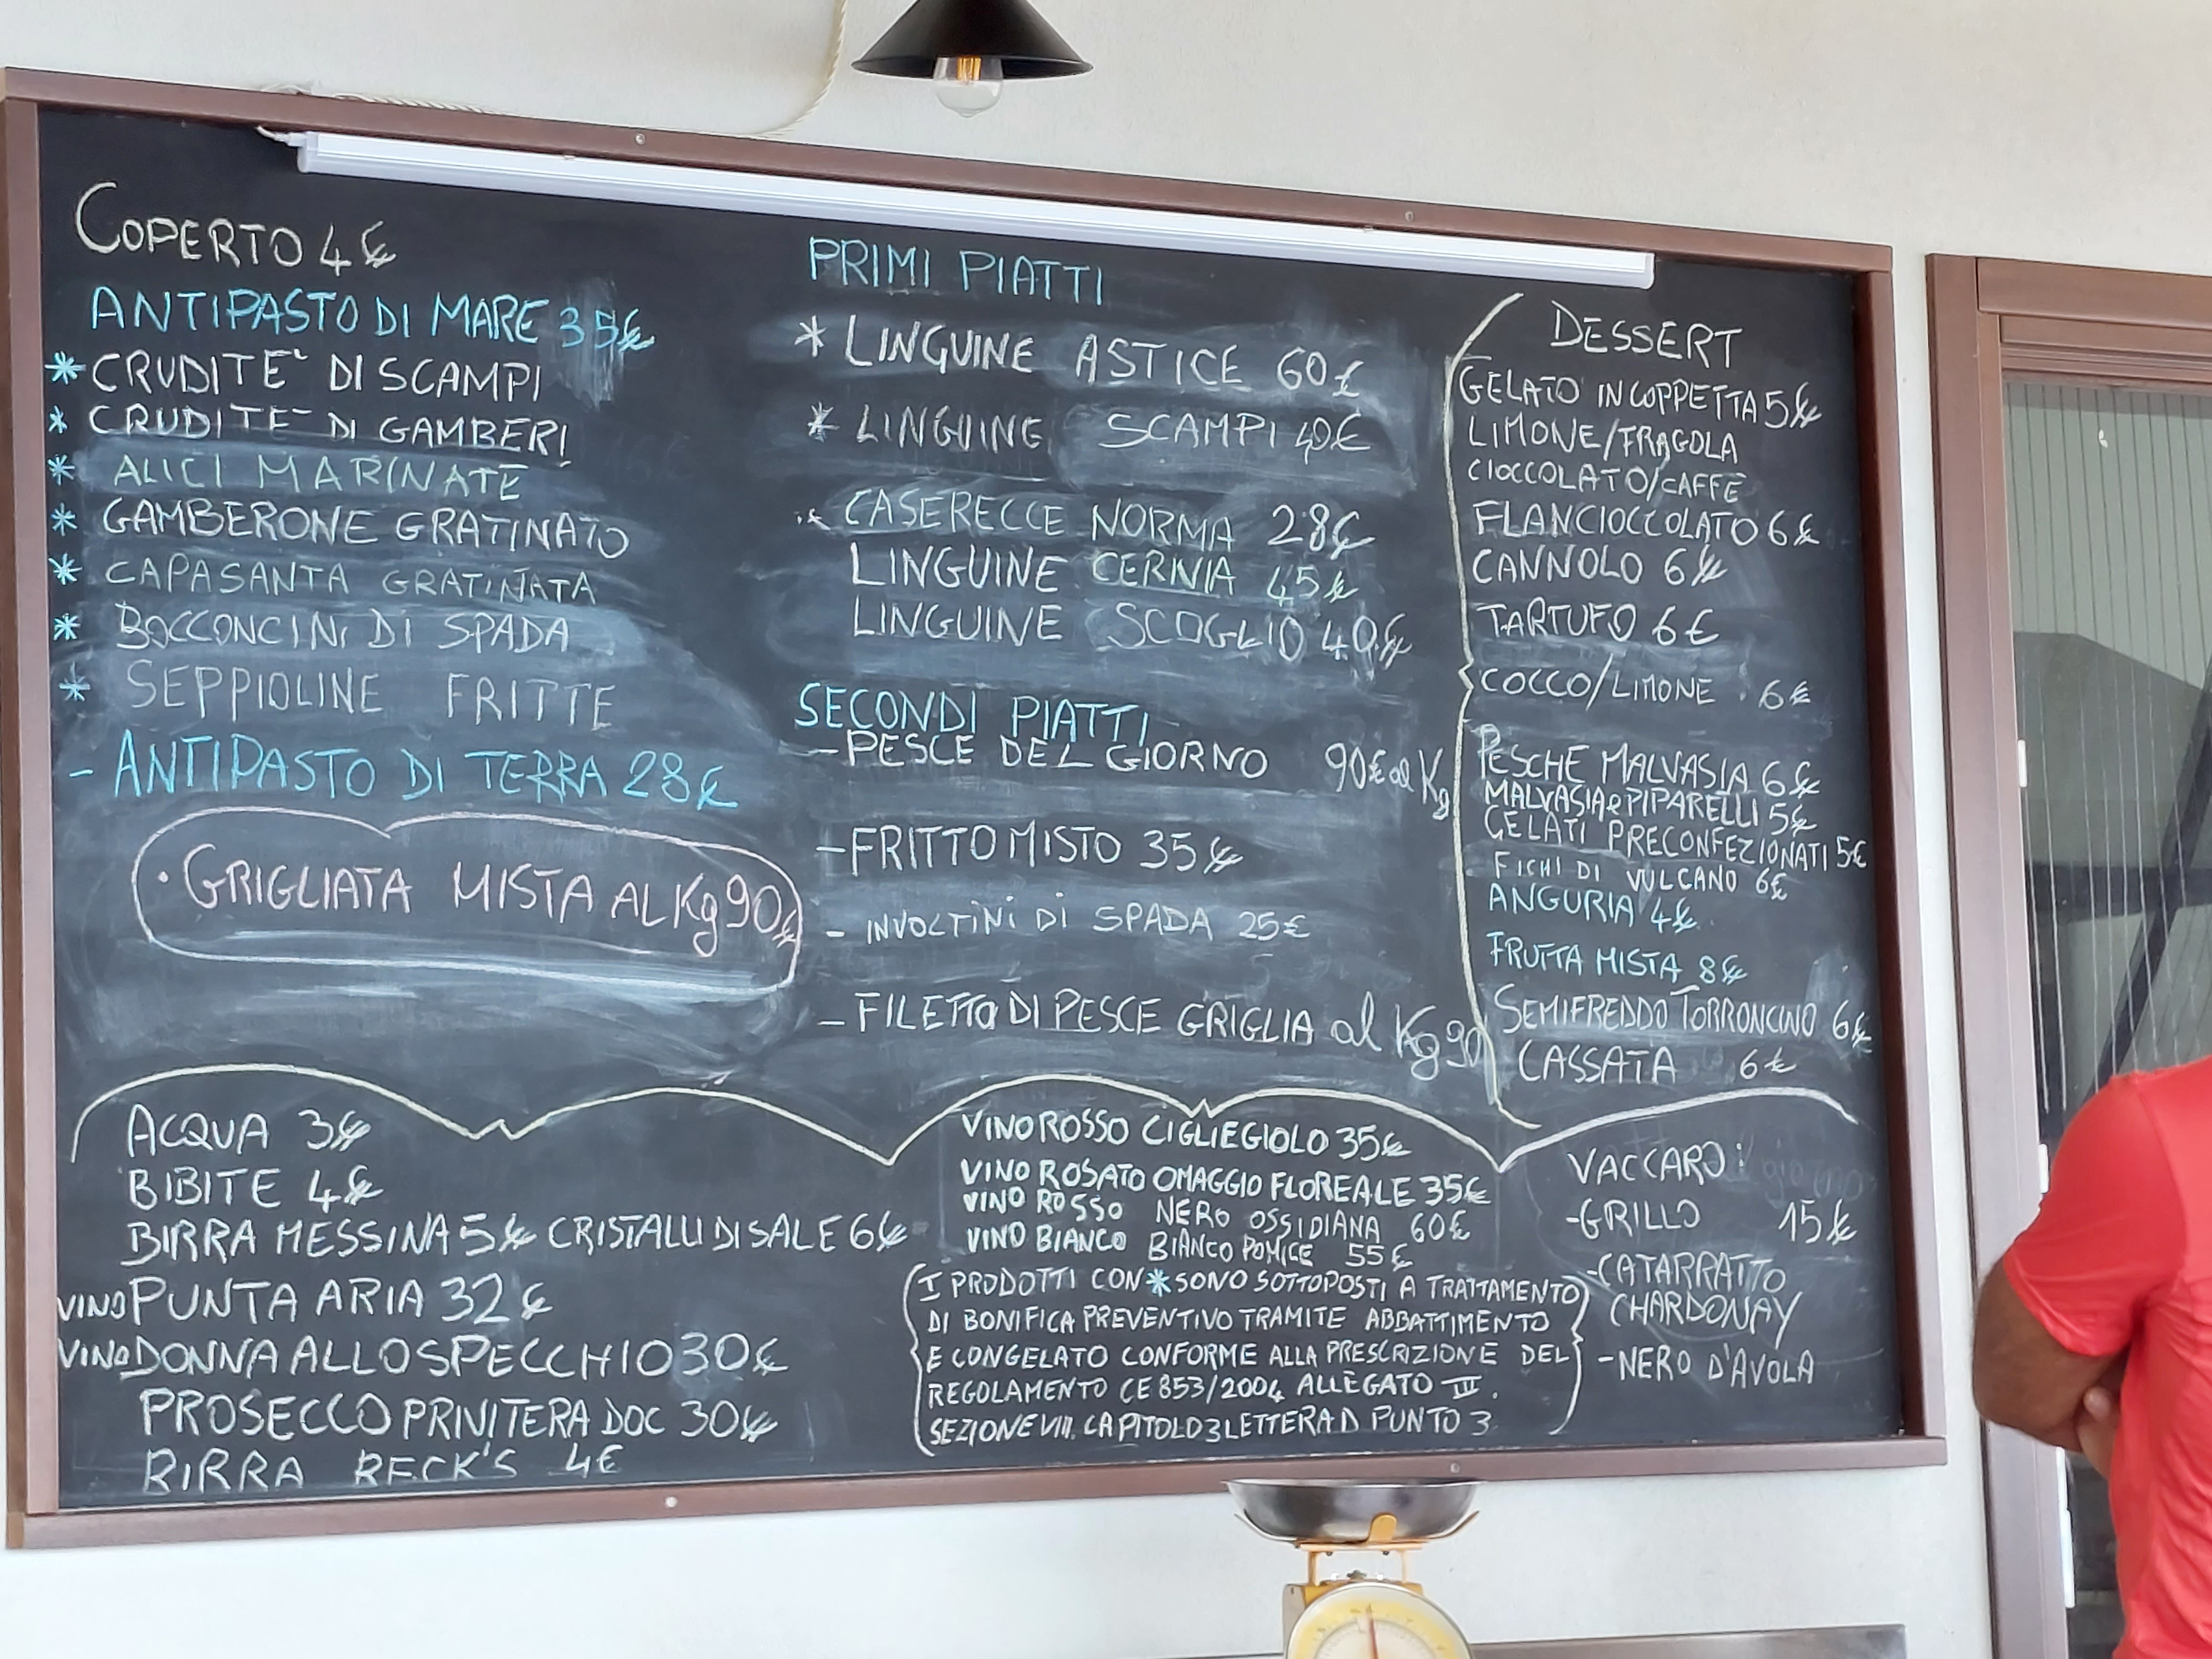 COPERTO 4€
ANTIPASTO DI MARE 35€
* CRUDITE` DI SCAMPI
* CRUDITE` DI GAMBERI
* ALICI MARINATE
* GAMBERONE GRATINATO
* CAPASANTA GRATINATA
* BOCCONCINI DI SPADA
* SEPPIOLINE FRITTE
- ANTIPASTO DI TERRA 28€
• GRIGLIATA MISTA AL Kg 90€
PRIMI PIATTI
* LINGUINE ASTICE 60€
* LINGUINE SCAMPI 40€
* CASERECCE NORMA 28€
LINGUINE CERNIA 45€
LINGUINE SCOGLIO 40€
SECONDI PIATTI
- PESCE DEL GIORNO 90€ al Kg
- FRITTO MISTO 35€
- INVOLTINI DI SPADA 25€
- FILETTO DI PESCE GRIGLIA al Kg 90
DESSERT
GELATO IN COPPETTA 5€
LIMONE/FRAGOLA
CIOCCOLATO/CAFFE
FLAN CIOCCOLATO 6€
CANNOLO 6€
TARTUFO 6€
COCCO/LIMONE 6€
PESCHE MALVASIA 6€
MALVASIA e PIPARELLI 5€
GELATI PRECONFEZIONATI 5€
FICHI DI VULCANO 6€
ANGURIA 4€
FRUTTA MISTA 8€
SEMIFREDDO TORRONCINO 6€
CASSATA 6€
ACQUA 3€
BIBITE 4€
BIRRA MESSINA 5€ CRISTALLI DI SALE 6€
VINO PUNTA ARIA 32€
VINO DONNA ALLO SPECCHIO 30€
PROSECCO PRIVITERA DOC 30€
BIRRA BECK'S 4€
VINO ROSSO CIGLIEGIOLO 35€
VINO ROSATO OMAGGIO FLOREALE 35€
VINO ROSSO NERO OSSIDIANA 60€
VINO BIANCO BIANCO POMICE 55€
I PRODOTTI CON * SONO SOTTOPOSTI A TRATTAMENTO
DI BONIFICA PREVENTIVO TRAMITE ABBATTIMENTO
E CONGELATO CONFORME ALLA PRESCRIZIONE DEL
REGOLAMENTO CE 853/2004 ALLEGATO III.
SEZIONE VIII. CAPITOLO 3 LETTERA D PUNTO 3
VACCARO:
- GRILLO 15€
- CATARRATTO
CHARDONAY
- NERO D'AVOLA